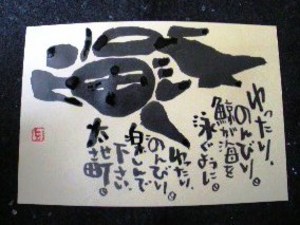 ゆったり、
のんびり。
鯨が海を
泳ぐように。
ゆったり、
のんびり。
楽しんで
下さい、
太地町。